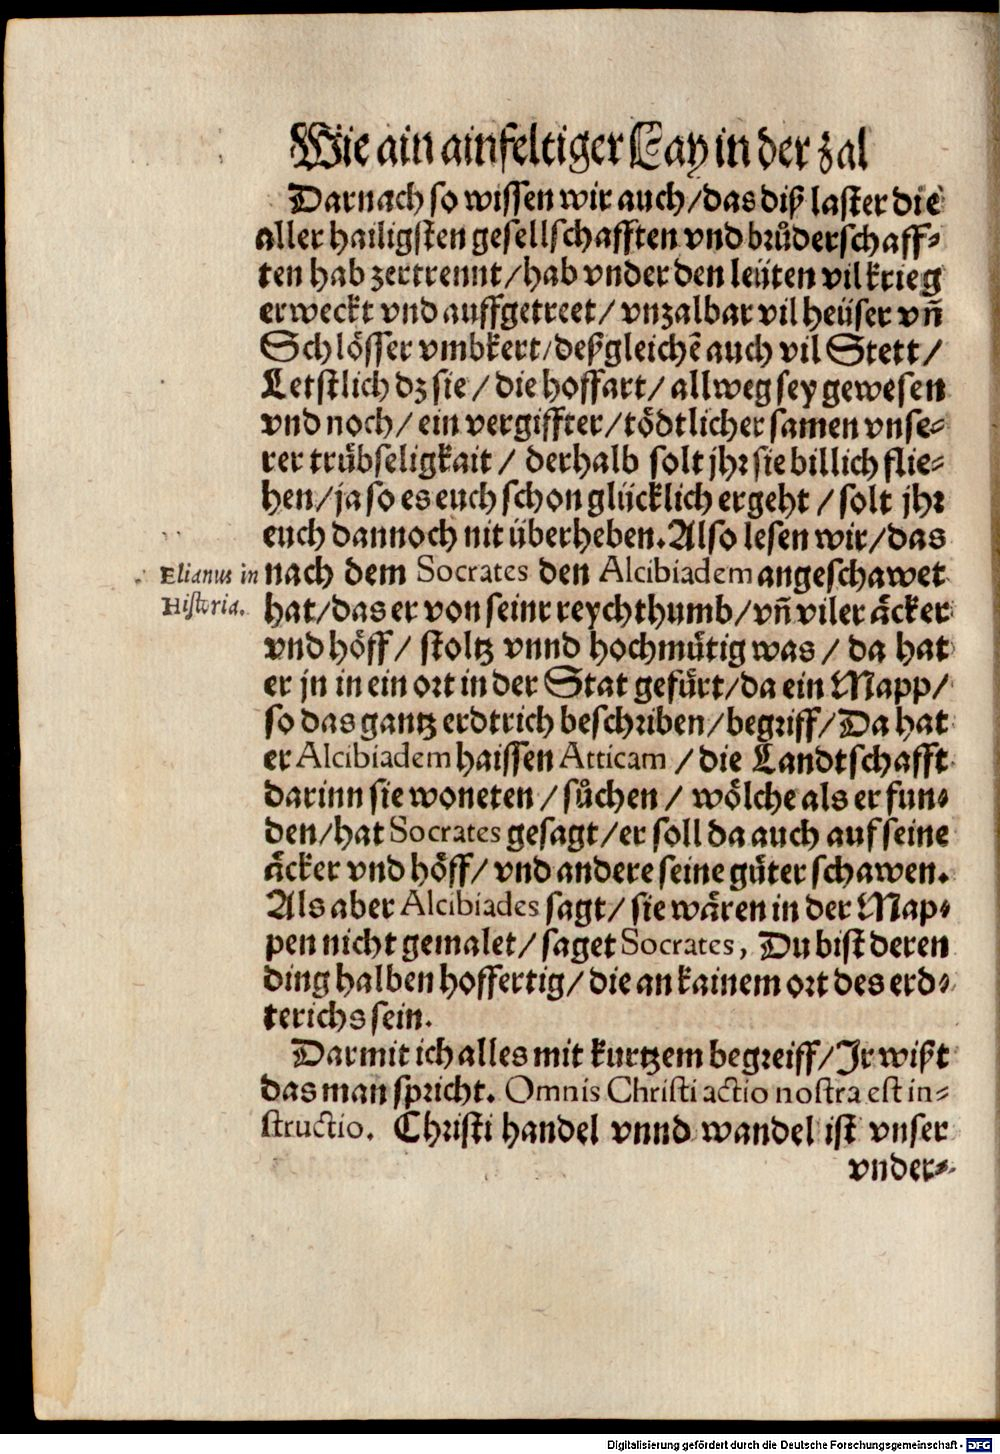 Wie ain ainfeltiger Lay in der zal
Darnach so wissen wir auch/das diß laster die
aller hailigsten gesellschafften vnd brůderschaff-
ten hab zertrennt/hab vnder den leüten vil krieg
erweckt vnd auffgetreet/ vnzalbar vil heüser vñ
Schlösser vmbkert/deßgleichē auch vil Stett/
Letstlich dz sie/die hoffart/ allweg sey gewesen
vnd noch/ ein vergiffter/tödtlicher samen vnse-
rer trübseligkait/ derhalb solt jhr sie billich flie-
hen/ja so es euch schon glücklich ergeht/solt jhr
euch dannoch nit überheben. Also lesen wir/das
Elianus in
Historia.
nach dem Socrates den Alcibiadem angeschawet
hat/das er von seinr reychthumb/vñ viler äcker
vnd höff/ stoltz vnnd hochmütig was/ da hat
er jn in ein ort in der Stat gefürt/da ein Mapp/
so das gantz erdtrich beschriben/begriff/Da hat
er Alcibiadem haissen Atticam/die Landtschafft
darinn sie woneten/sůchen/ wölche als er fun-
den/hat Socrates gesagt/er soll da auch auf seine
äcker vnd höff/ vnd andere seine güter schawen.
Als aber Alcibiades sagt/ sie wären in der Map-
pen nicht gemalet/ saget Socrates, Du bist deren
ding halben hoffertig/die an kainem ort des erd-
terichs sein.
Darmit ich alles mit kurtzem begreiff/Ir wißt
das man spricht. Omnis Christi actio nostra est in-
structio. Christi handel vnnd wandel ist vnser
vnder-
Digitalisierung gefördert durch die Deutsche Forschungsgemeinschaft - DFG